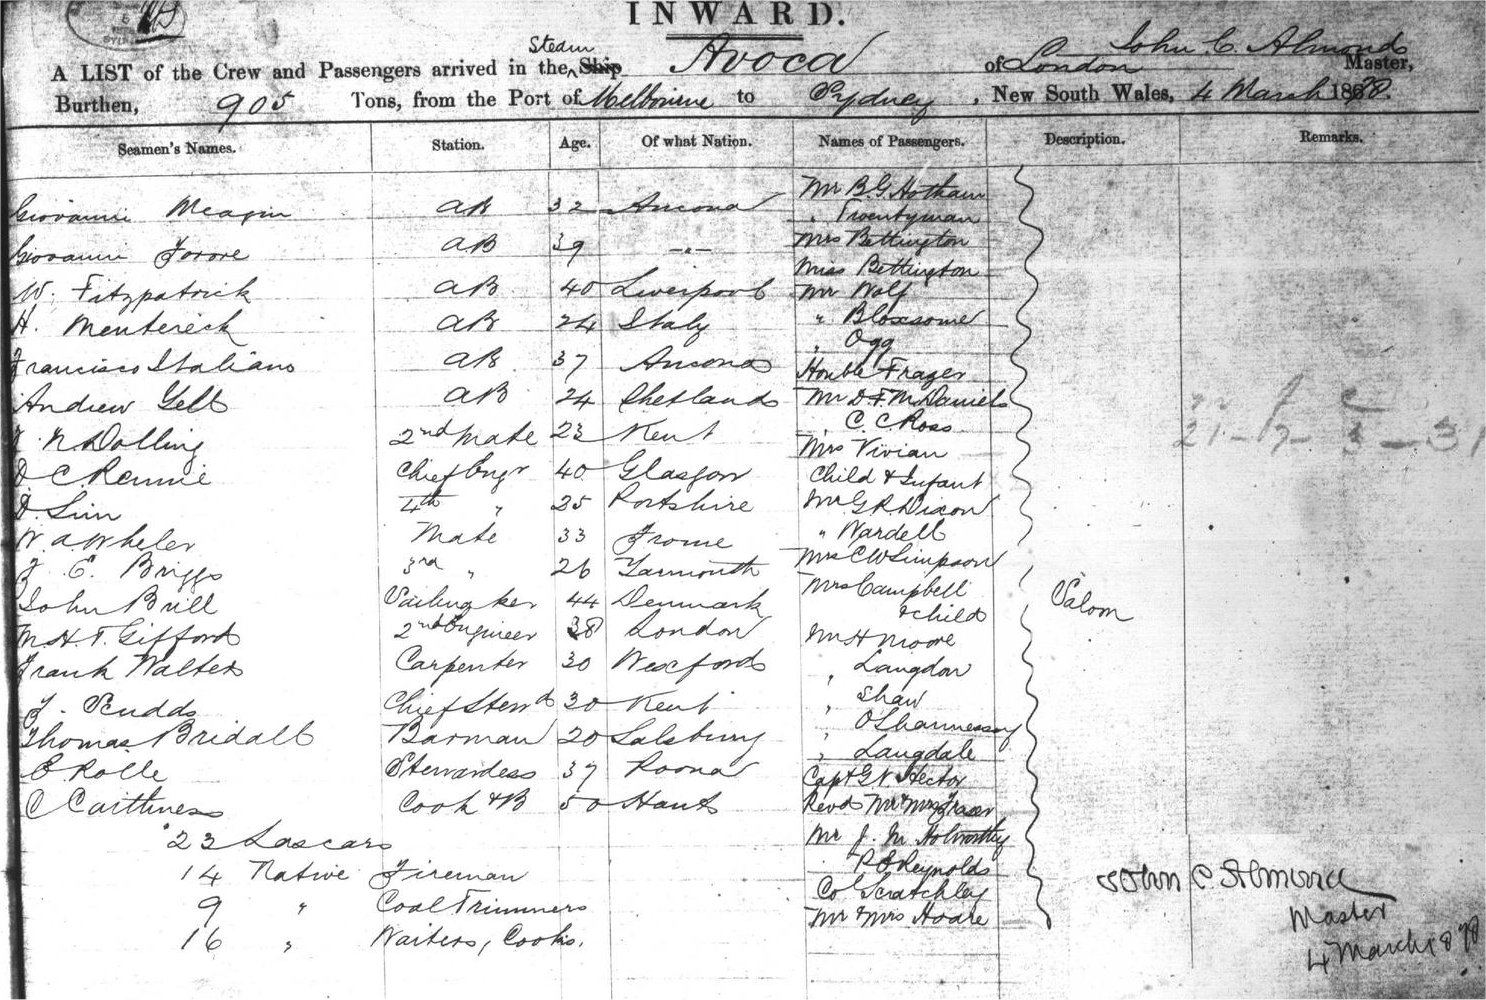 INWARD.
Steam
John C. Almond
A LIST of the Crew and Passengers arrived in the Ship Avoca of London Master,
Burthen, 905 Tons, from the Port of Melbourne to Sydney, New South Wales, 4 March 1878.
Seamen's Names. Station. Age. Of what Nation. Names of Passengers. Description. Remarks.
Mr B. G. Hotham
Giovanni AB 32 Ancona
" Twentyman
Giovanni AB 39 -"- Mrs Bettington
Miss Bettington
W. Fitzpatrick AB 40 Liverpool Mr Wolf
H. AB 24 Italy " Bloxsome
" Ogg
Francisco Italiano AB 37 Ancona Honble Frazer
Andrew Yell AB 24 Shetlands Mr D F McDaniel
" C. C. Ross
N Dolling 2nd Mate 23 Kent Mrs Vivian
D C Rennie Chief Engr 40 Glasgow Child & Infant
D. Sim 4th " 25 Mr G R Dixon
W. A. Wheler Mate 33 Frome " Wardell
Mrs C W Simpson
E. Briggs 3rd " 26 Yarmouth
Mrs Campbell
John Brill 44 Denmark & child
Saloon
M. H. T. Gifford 2nd Engineer 38 London Mr H Moore
Frank Walter Carpenter 30 Wexford " Langdon
" Shaw
Scudds Chief Stewd 30 Kent
" O'Shannessy
Thomas Bridall Barman 20 Salsbury " Langdale
Rolle Stewardess 37 Poona Capt G N Hector
C Caithness Cook & B 50 Hants Revd Mr & Mrs Fraser
23 Lascars Mr J. M. Holworthy
14 Native Fireman " Reynolds
Col Scratchley
John C Almond
9 " Coal Trimmers Mr & Mrs Hoare
Master
16 " Waiters, Cooks.
4 March 1878